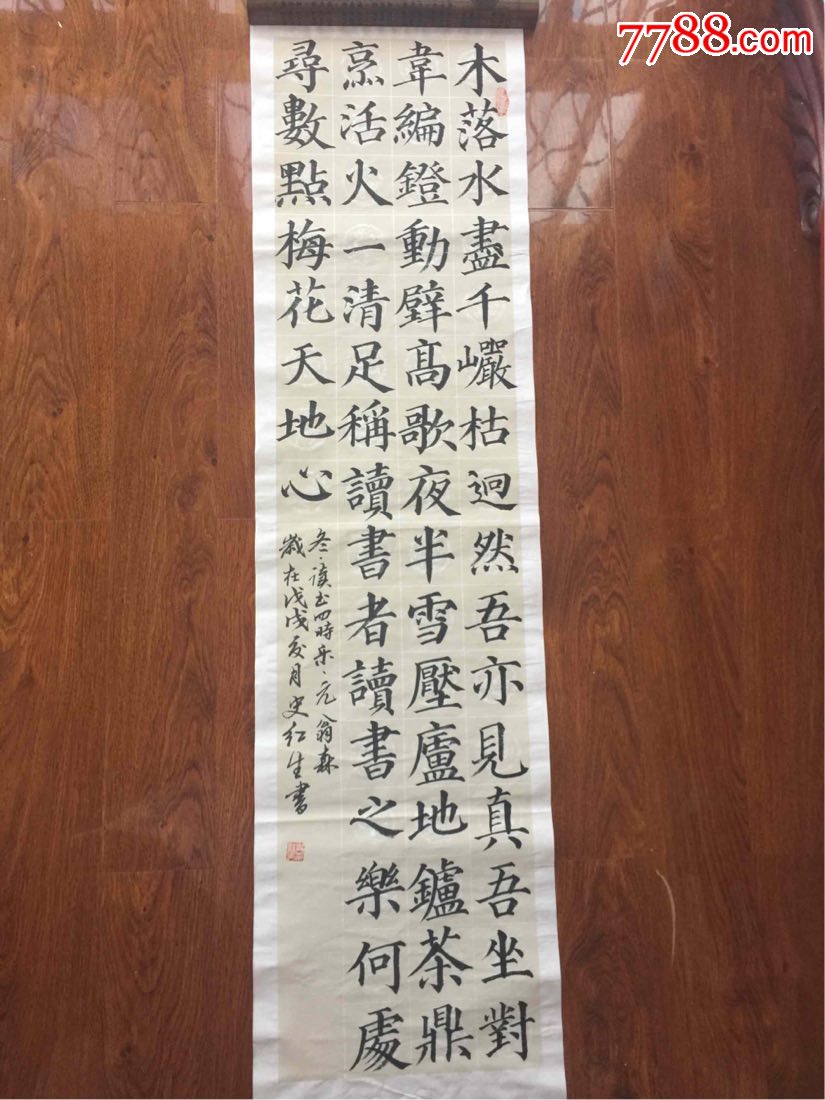 木落水盡千巗枯逈然吾亦見真吾坐對
韋編鐙動壁髙歌夜半雪壓廬地鑪茶鼎
烹活火一清足稱讀書者讀書之樂何處
尋數點梅花天地心
冬·读书四時乐·元翁森
歲在戊戌夏月史红生書
7788.com